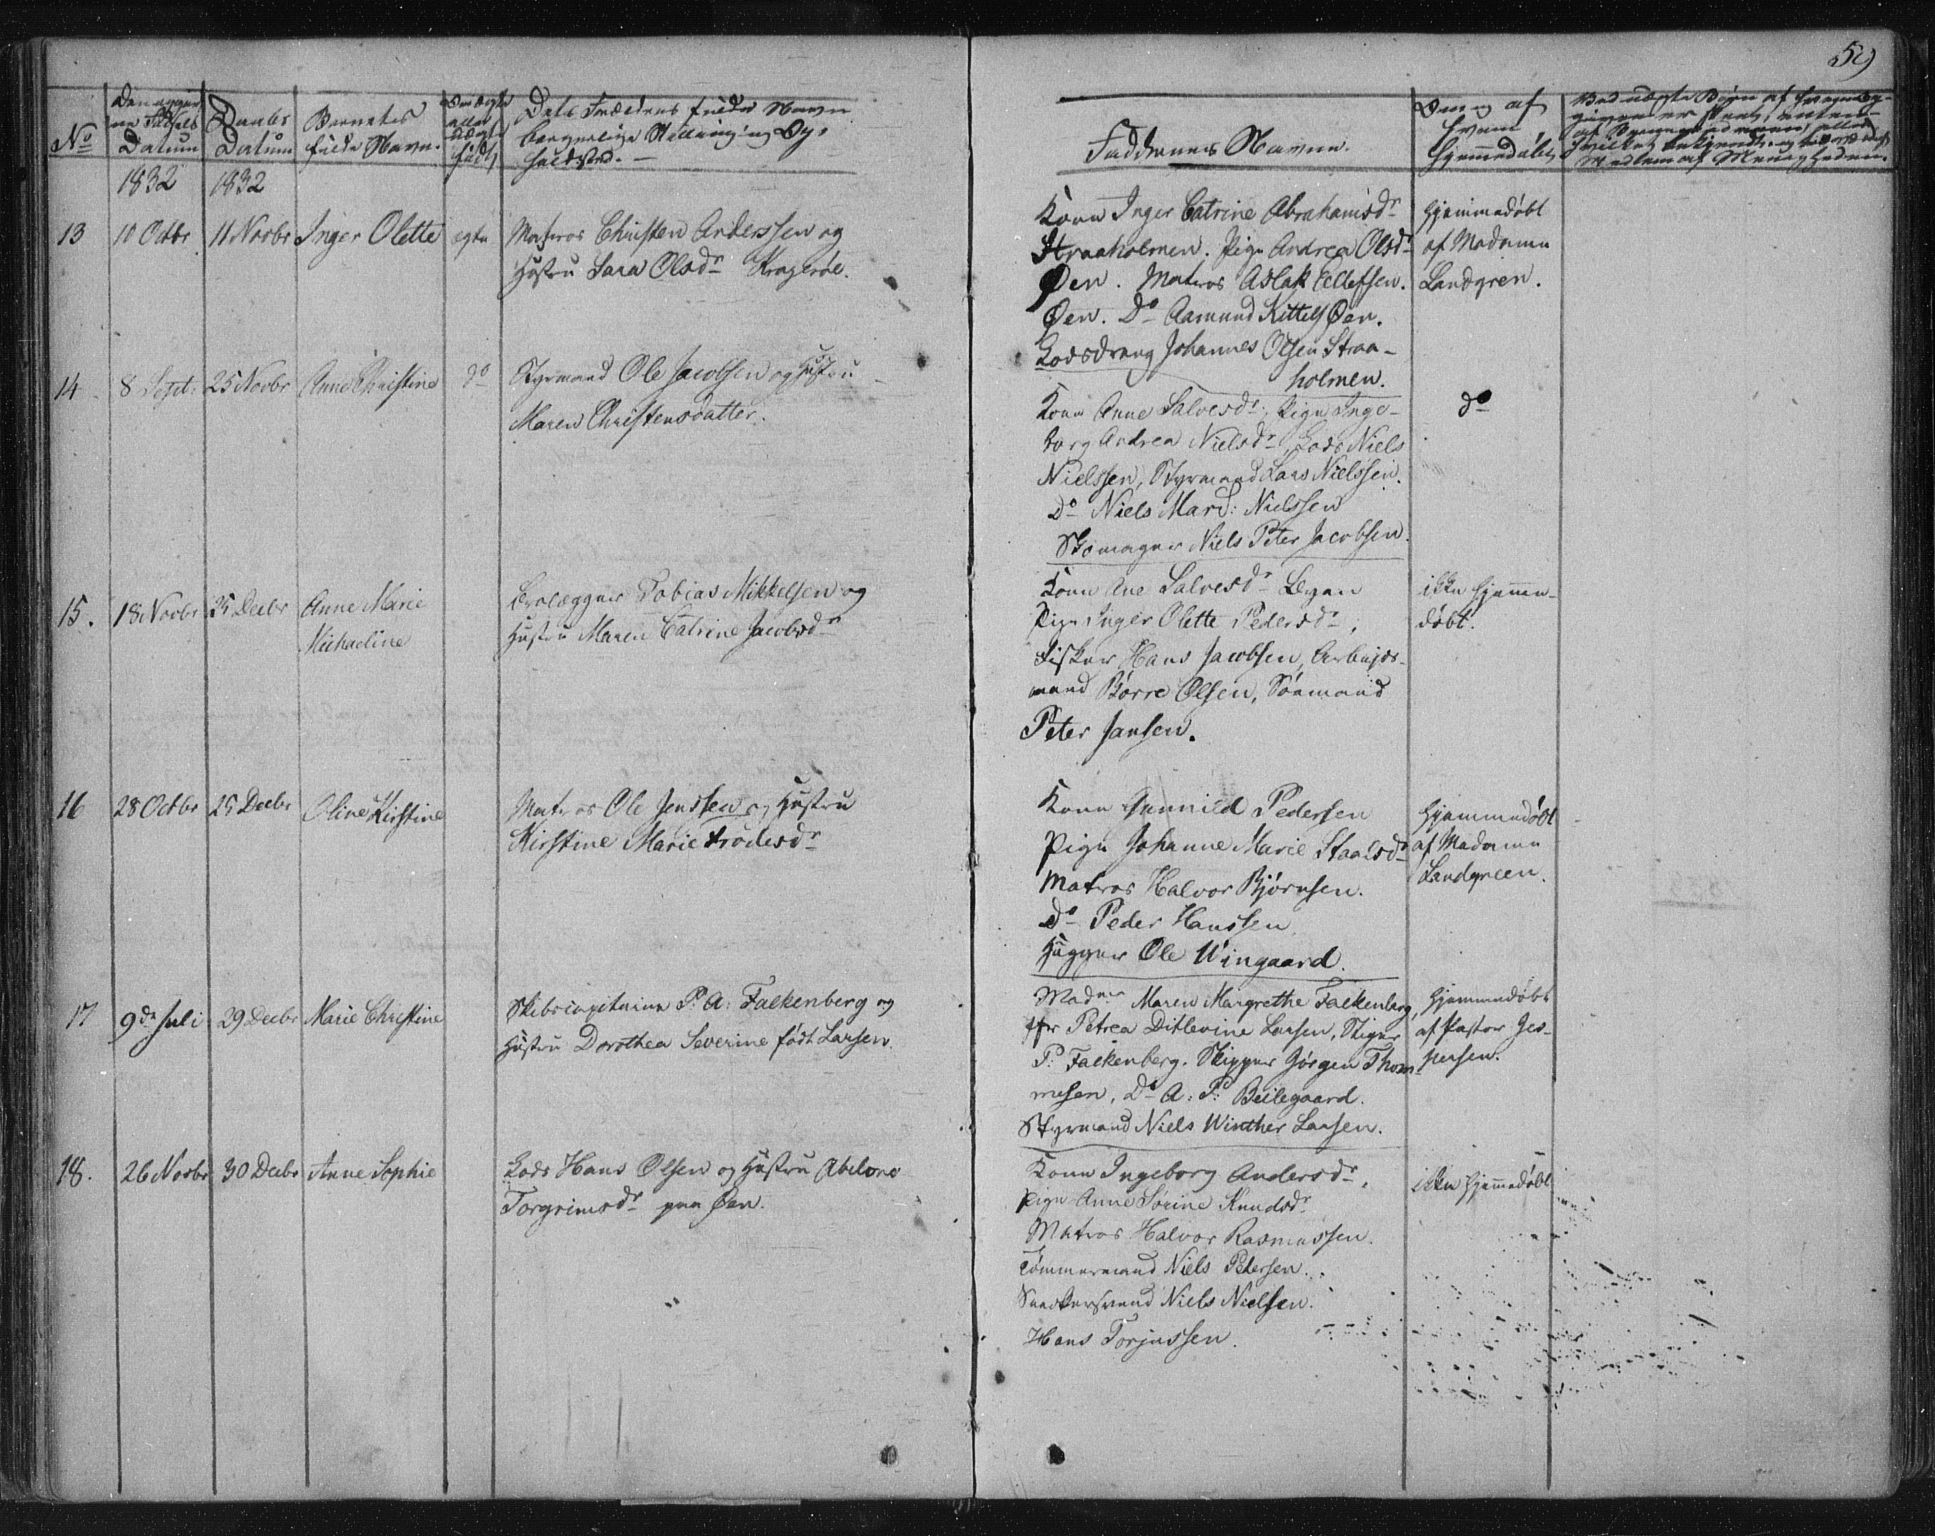 59
No
Datum
Daabs
Datum
Barnets
fulde Navn.
Dets Forældres fulde Navn
borgerlige Stilling og Op-
holdssted.
Faddernes Navne.
Om og af
hvem
hjemmedøbt
1832 1832
13 10 Octbr 11 Novbr Inger Olette ægte Matros Christen Anderssen og
Hustru Sara Olsdr Kragerøe.
Kone Inger Catrine Abrahamsdr
Straaholmen. Pige Andrea Olsdr
Øen. Matros Aslak Ellefsen.
Øen. Do Aamund Kittels Øen.
Lodsdreng Johannes Olsen Straa-
holmen.
Hjemmedøbt
af Madame
Landgren.
14 8 Sept. 25 Novbr Anne Christine do Styrmand Ole Jacobsen og Hustru
Maren Christensdatter.
Kone Anne Salvesdr, Pige Inge-
borg Andrea Nielsdr, Lods Niels
Nielssen, Styrmand Lars Nielssen.
Do Niels Mard: Nielssen
Skomager Niels Peter Jacobsen.
do
15. 18 Novbr 25 Decbr Anne Marie
Michaeline
Brolægger Tobias Mikkelsen og
Hustru Maren Catrine Jacobsdr
Kone Ane Salvesdr
Pige Inger Olette Pedersdr,
Fisker Hans Jacobsen, Arbejds-
mand Børre Olsen, Sømand
Peter Jansen.
ikke hjemme-
døbt.
16 28 Octbr 25 Decbr Oline Kirstine Matros Ole Jenssen og Hustru
Kirstine Marie Frodesdr
Kone Gunnild Pedersen
Pige Johanne Marie Staalsdr
Matros Halvor Bjørnsen.
do Peder Hanssen
Hugger Ole Wingaard.
Hjemmedøbt
af Madame
Landgreen.
17 9de Juli 29 Decbr Marie Christine Skibscapitaine P. A: Falkenberg og
Hustru Dorothea Severine født Larsen.
Madme Maren Margrethe Falkenberg,
Jfr Petrea Ditlevine Larsen,
P. Falkenberg. Skipper Jørgen Thom-
mesen, Do A: P: Beilegaard.
Styrmand Niels Winther Larsen.
Hjemmedøbt
af Pastor Jes-
persen.
18. 26 Novbr 30 Decbr Anne Sophie Lods Hans Olsen og Hustru Abelone
Torgrimsdr paa Øen.
Kone Ingeborg Andersdr,
Pige Anne Sørine Knudsdr
Matros Halvor Rasmussen.
Tømmermand Niels Petersen.
Snedkersvend Niels Nielsen.
Hans Torjussen.
ikke hjemmedøbt